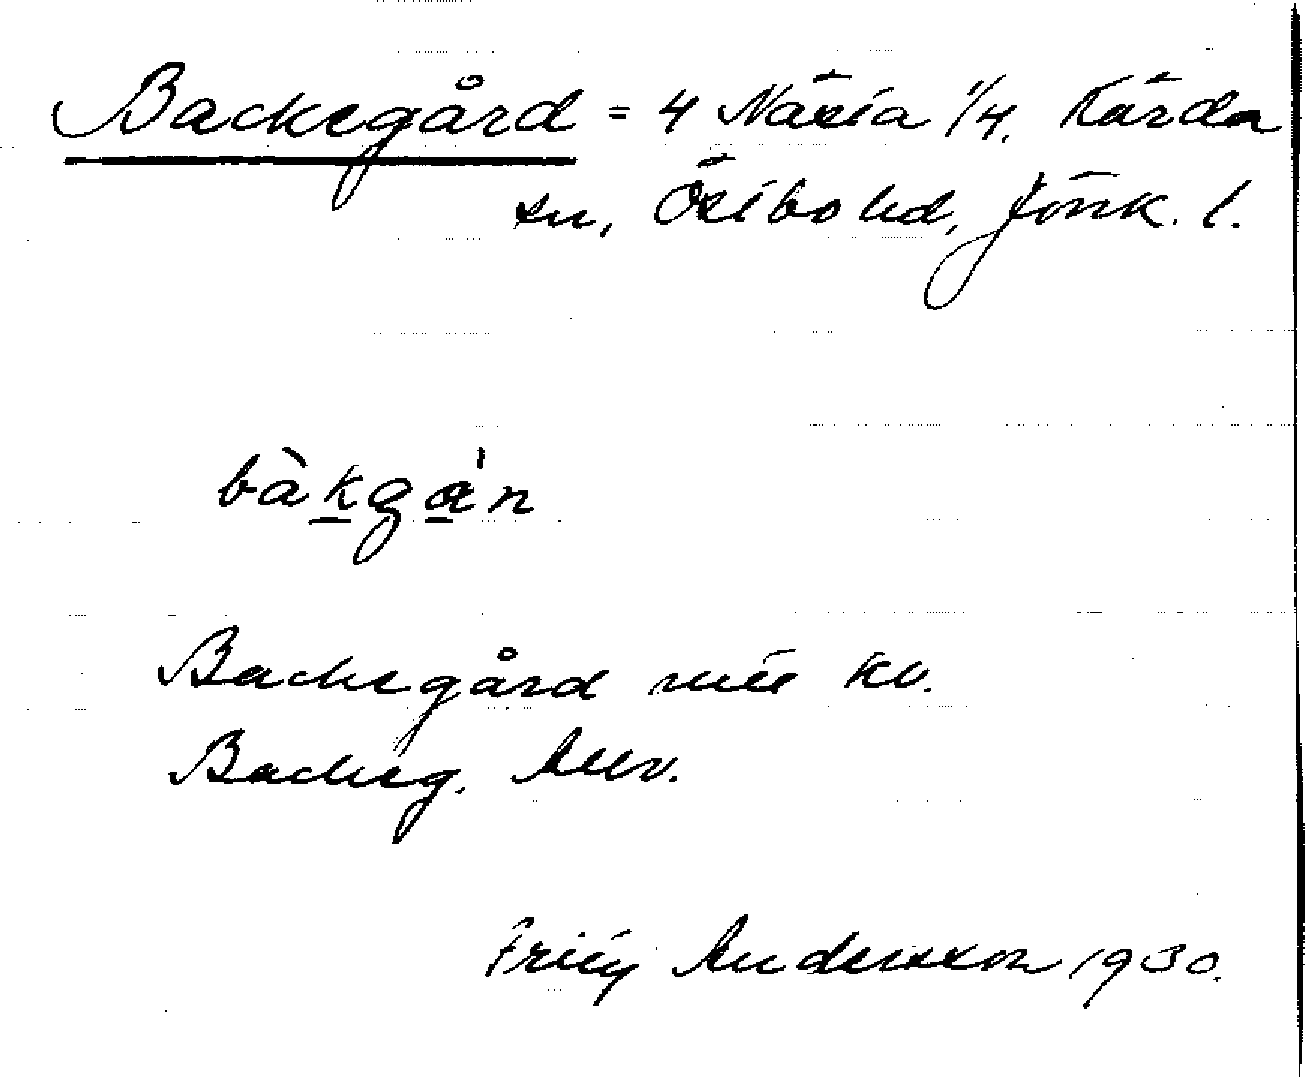 Backegård = 4 Nästa 1/4, Kärda
sn, Östbo hd, Jönk. l.
bàkgán
Backegård
Backeg.
Fritz Andersson 1930.